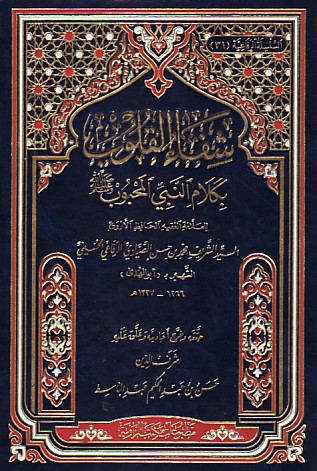 السلسلة الرفاعية (٣١)
شفاء القلوب
بكلام النبي المحبوب ﷺ
للعلامة الفقيه الحافظ
السيد الشريف محمد بن حسن الصيادي الرفاعي الحسيني
الشهير بـ (أبو الهدى)
١٢٦٦ - ١٣٢٧ هـ
حققه وخرج أحاديثه وعلق عليه
شرف الدين
حسن بن عبد الحكيم عبد الباسط